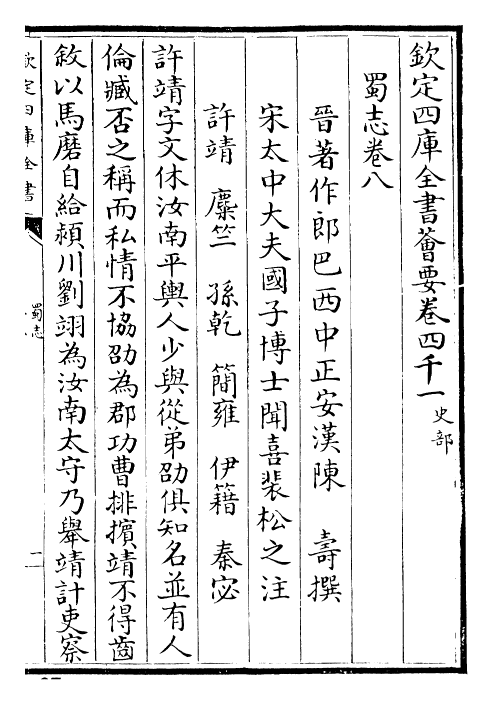 欽定四庫全書薈要卷四千一 史部
蜀志卷八
晉著作郎巴西中正安漢陳 壽撰
宋太中大夫國子博士聞喜裴松之注
許靖 麋竺 孫乾 簡雍 伊籍 秦宓
許靖字文休汝南平輿人少與從弟劭俱知名並有人
倫臧否之稱而私情不協劭為郡功曹排擯靖不得齒
敘以馬磨自給潁川劉翊為汝南太守乃舉靖計吏察
欽定四庫全書
蜀志